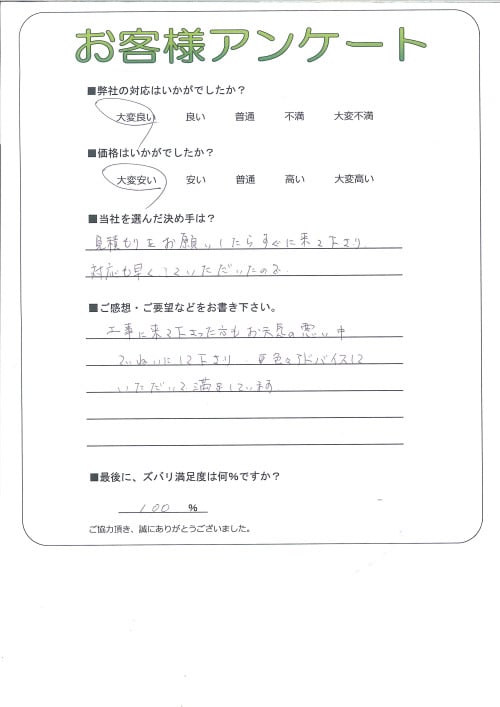 お客様アンケート
■弊社の対応はいかがでしたか？
大変良い 良い 普通 不満 大変不満
■価格はいかがでしたか？
大変安い 安い 普通 高い 大変高い
■当社を選んだ決め手は？
見積もりをお願いしたらすぐに来て下さり
対応も早くしていただいたので
■ご感想・ご要望などをお書き下さい。
工事に来て下さった方もお天気の悪い中
ていねいにして下さり 色々アドバイスして
いただいて満足しています
■最後に、ズバリ満足度は何%ですか？
100 %
ご協力頂き、誠にありがとうございました。